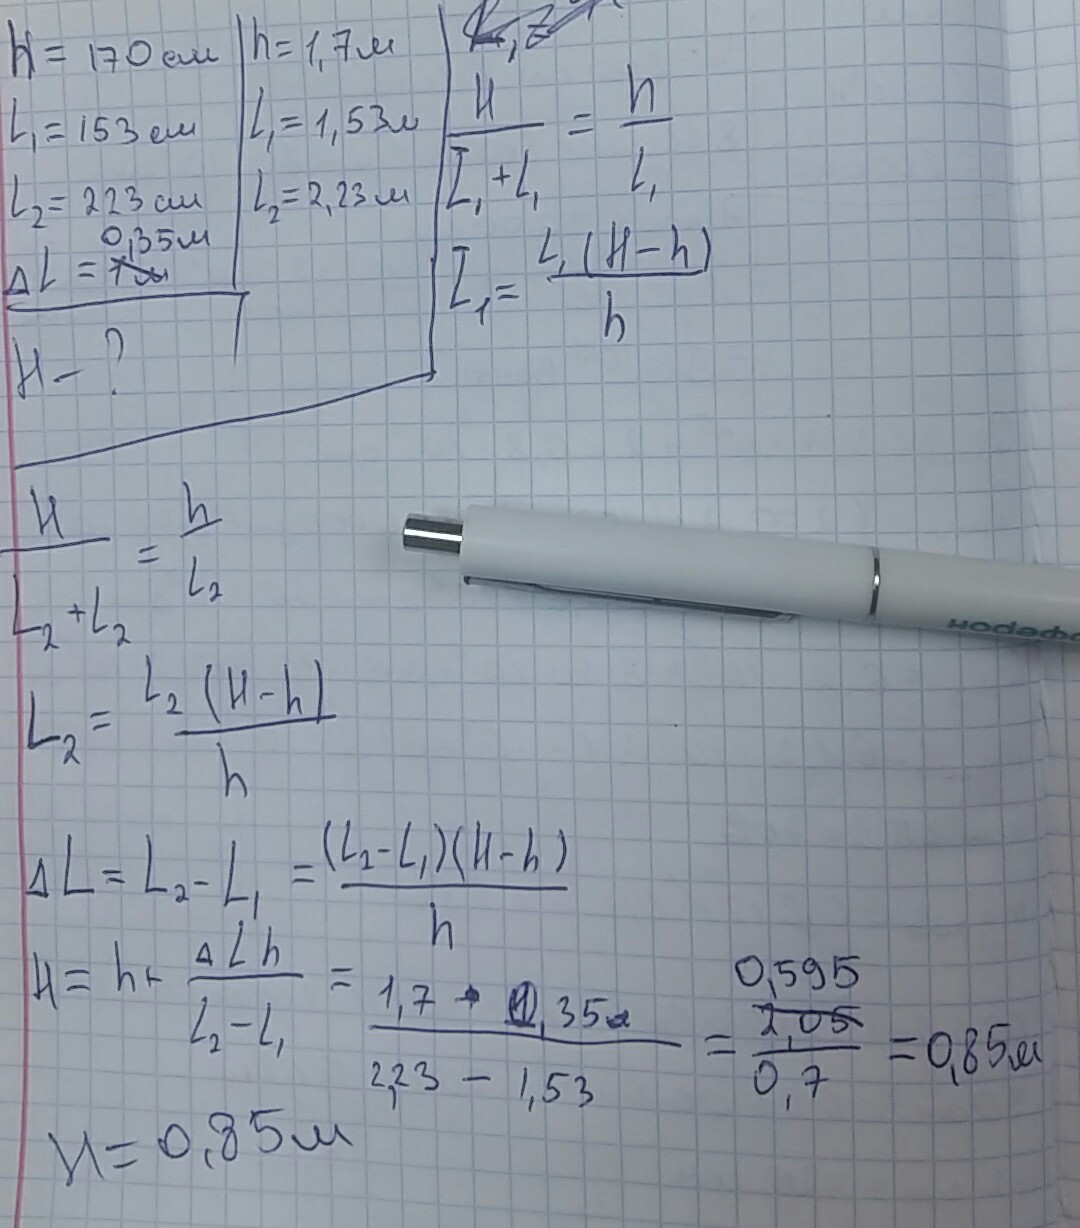 h = 170 см
L₁ = 153 см
L₂ = 223 см
0,35м
ΔL = 1м
H – ?
h = 1,7м
L₁ = 1,53м
L₂ = 2,23м
H/(L₁ + L₁) = h/L₁
L₁ = L₁(H – h)/h
H/(L₂ + L₂) = h/L₂
L₂ = L₂(H – h)/h
ΔL = L₂ – L₁ = (L₂ – L₁)(H – h)/h
H = h + ΔLh/(L₂ – L₁) = 1,7 · 0,35/(2,23 – 1,53) = 0,595 2,05/0,7 = 0,85м
H = 0,85м